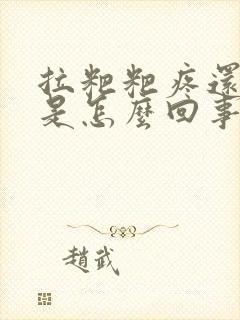 拉粑粑疼還
是怎麼回事
趙武